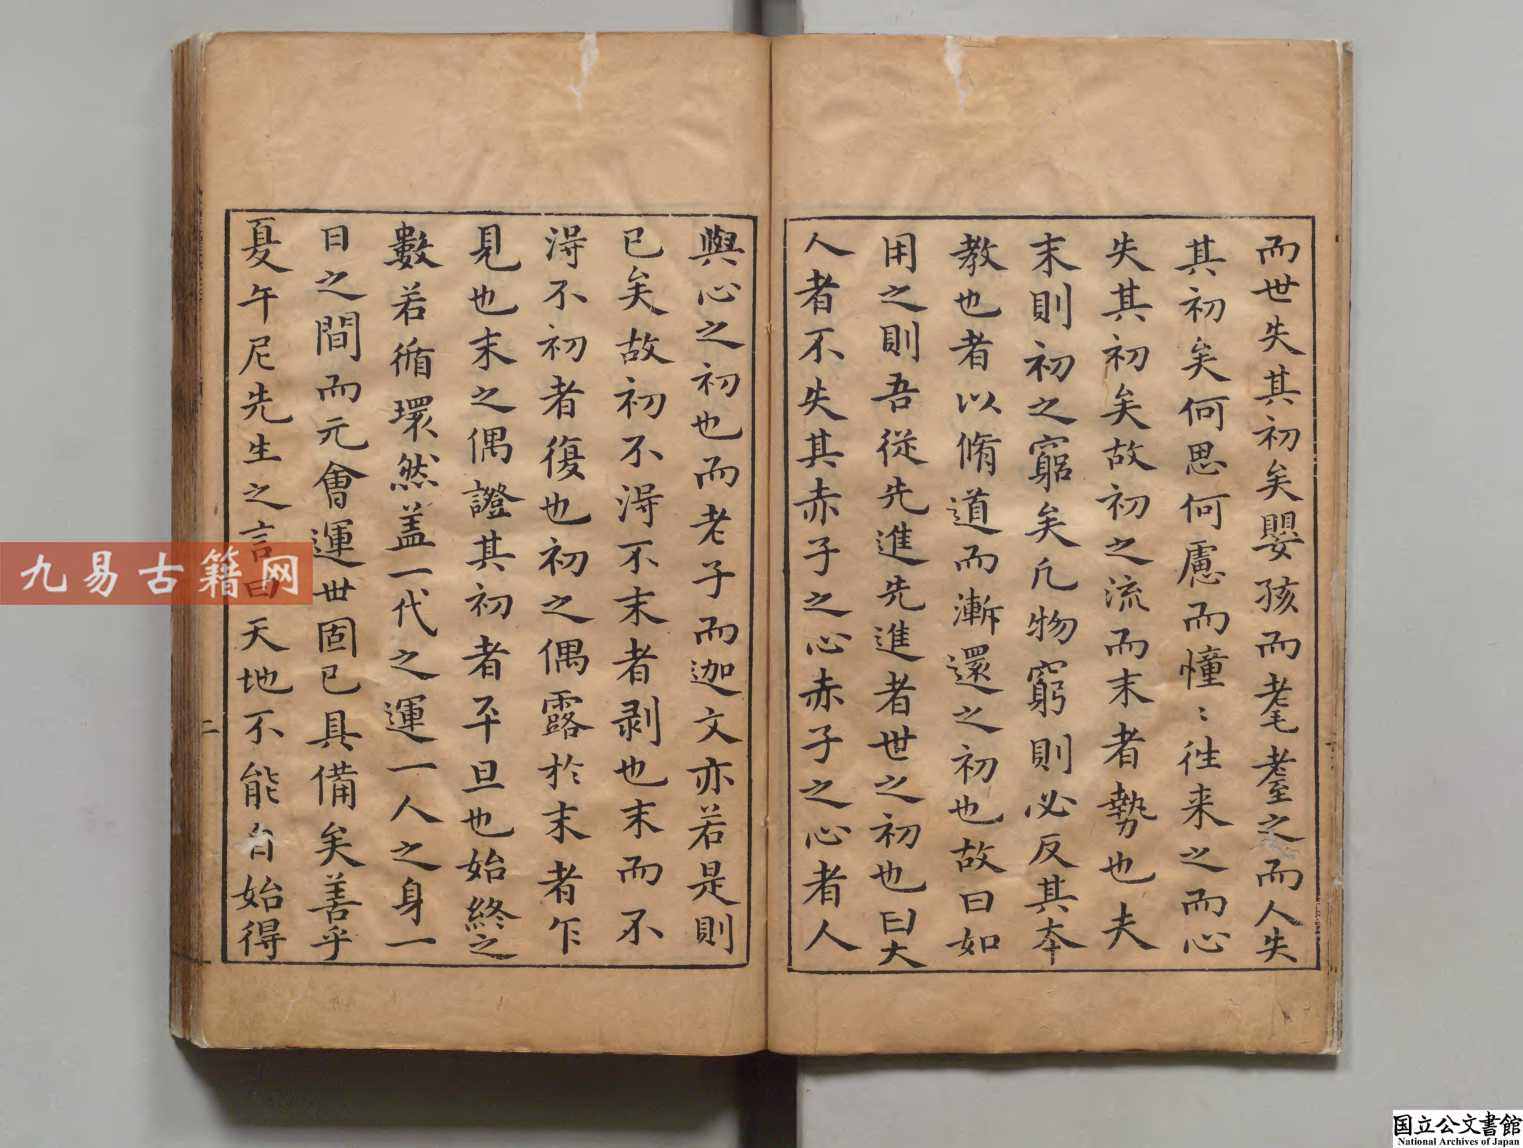 而世失其初矣嬰孩而耄耋之而人失
其初矣何思何慮而憧〻徃来之而心
失其初矣故初之流而末者勢也夫
末則初之窮矣凡物窮則必反其本
教也者以脩道而漸還之初也故曰如
用之則吾從先進先進者世之初也曰大
人者不失其赤子之心赤子之心者人
與心之初也而老子而迦文亦若是則
已矣故初不淂不末者剥也末而不
淂不初者復也初之偶露於末者乍
見也末之偶證其初者平旦也始終之
數若循環然盖一代之運一人之身一
日之間而元會運世固已具備矣善乎
夏午尼先生之言曰天地不能自始得
二
九易古籍网
国立公文書館
National Archives of Japan